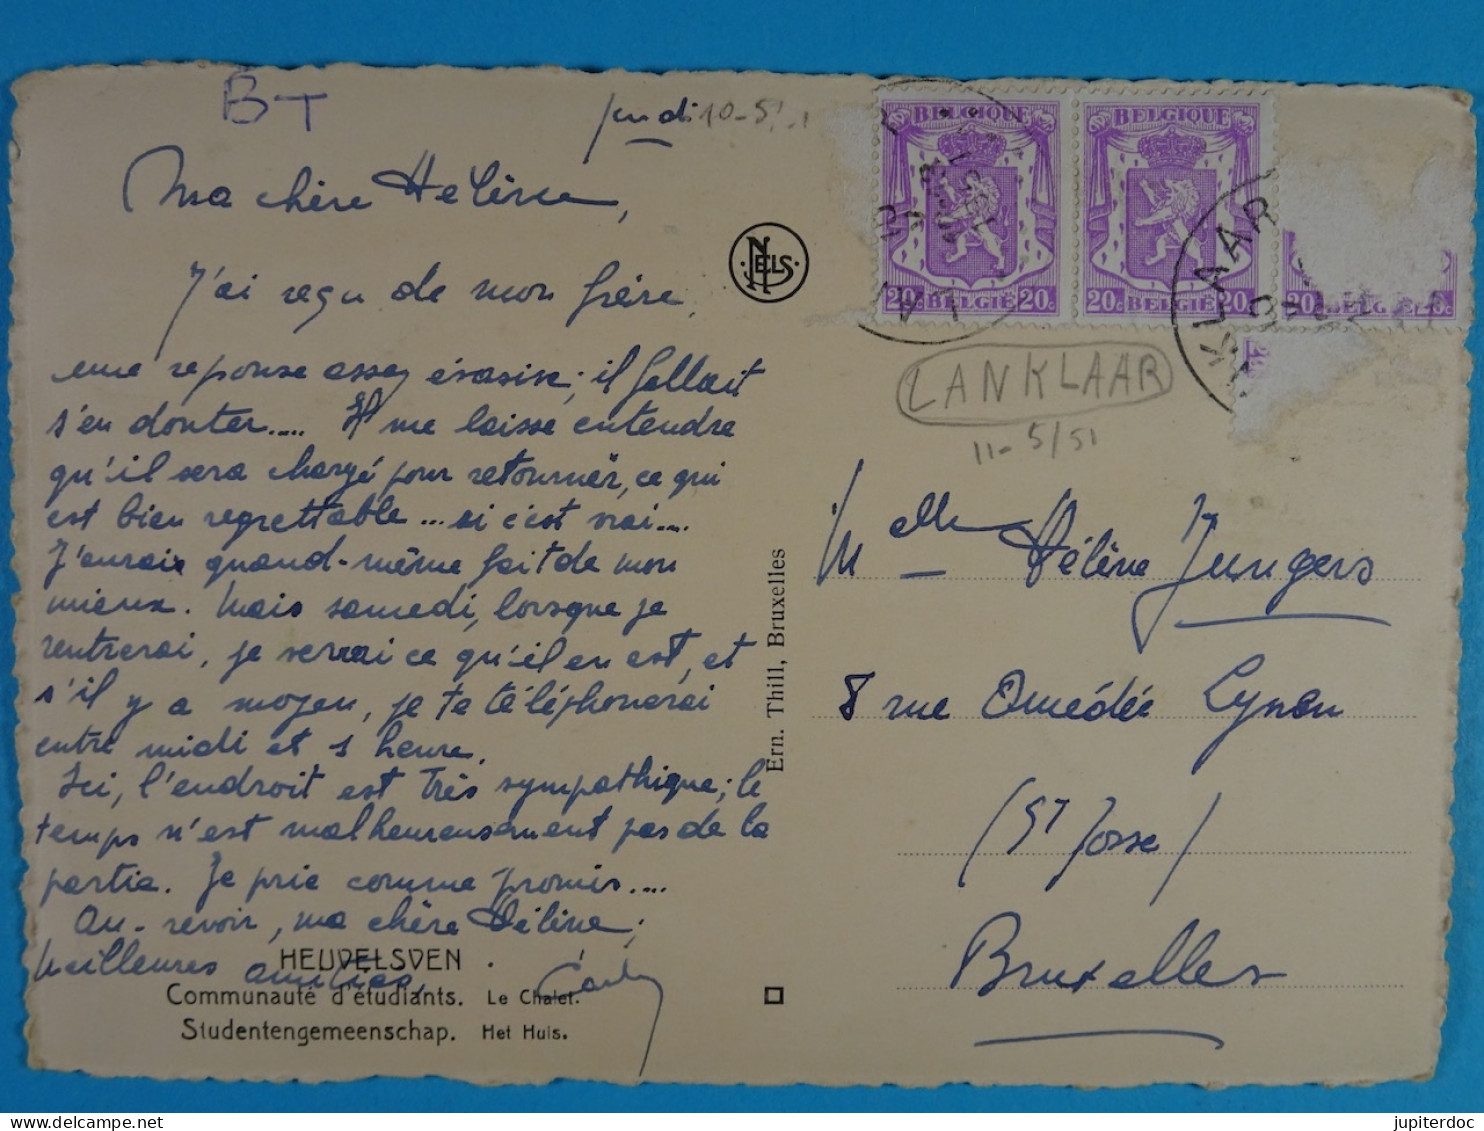 BT
jeudi 10-5-
Ma chère Hélène,
J'ai reçu de mon frère,
une réponse assez évasive; il fallait
s'en douter.... Il me laisse entendre
qu'il sera chargé pour retourner, ce qui
est bien regrettable... si c'est vrai....
J'aurais quand-même fait de mon
mieux. Mais samedi, lorsque je
rentrerai, je verrai ce qu'il en est, et
s'il y a moyen, je te téléphonerai
entre midi et 1 heure.
Ici, l'endroit est très sympathique; le
temps n'est malheureusement pas de la
partie. Je prie comme promis....
Au-revoir, ma chère Hélène;
meilleures amitiés,
HEUVELSVEN
Communauté d'étudiants. Le Chalet.
Studentengemeenschap. Het Huis.
NELS
Ern. Thill, Bruxelles
BELGIQUE
20c BELGIË 20c
BELGIQUE
20c BELGIË 20c
20c BELGIË 20c
LANKLAAR
LANKLAAR
11-5/51
Melle Hélène Jungers
8 rue Amédée Lynen
(St Josse)
Bruxelles
jupiterdoc